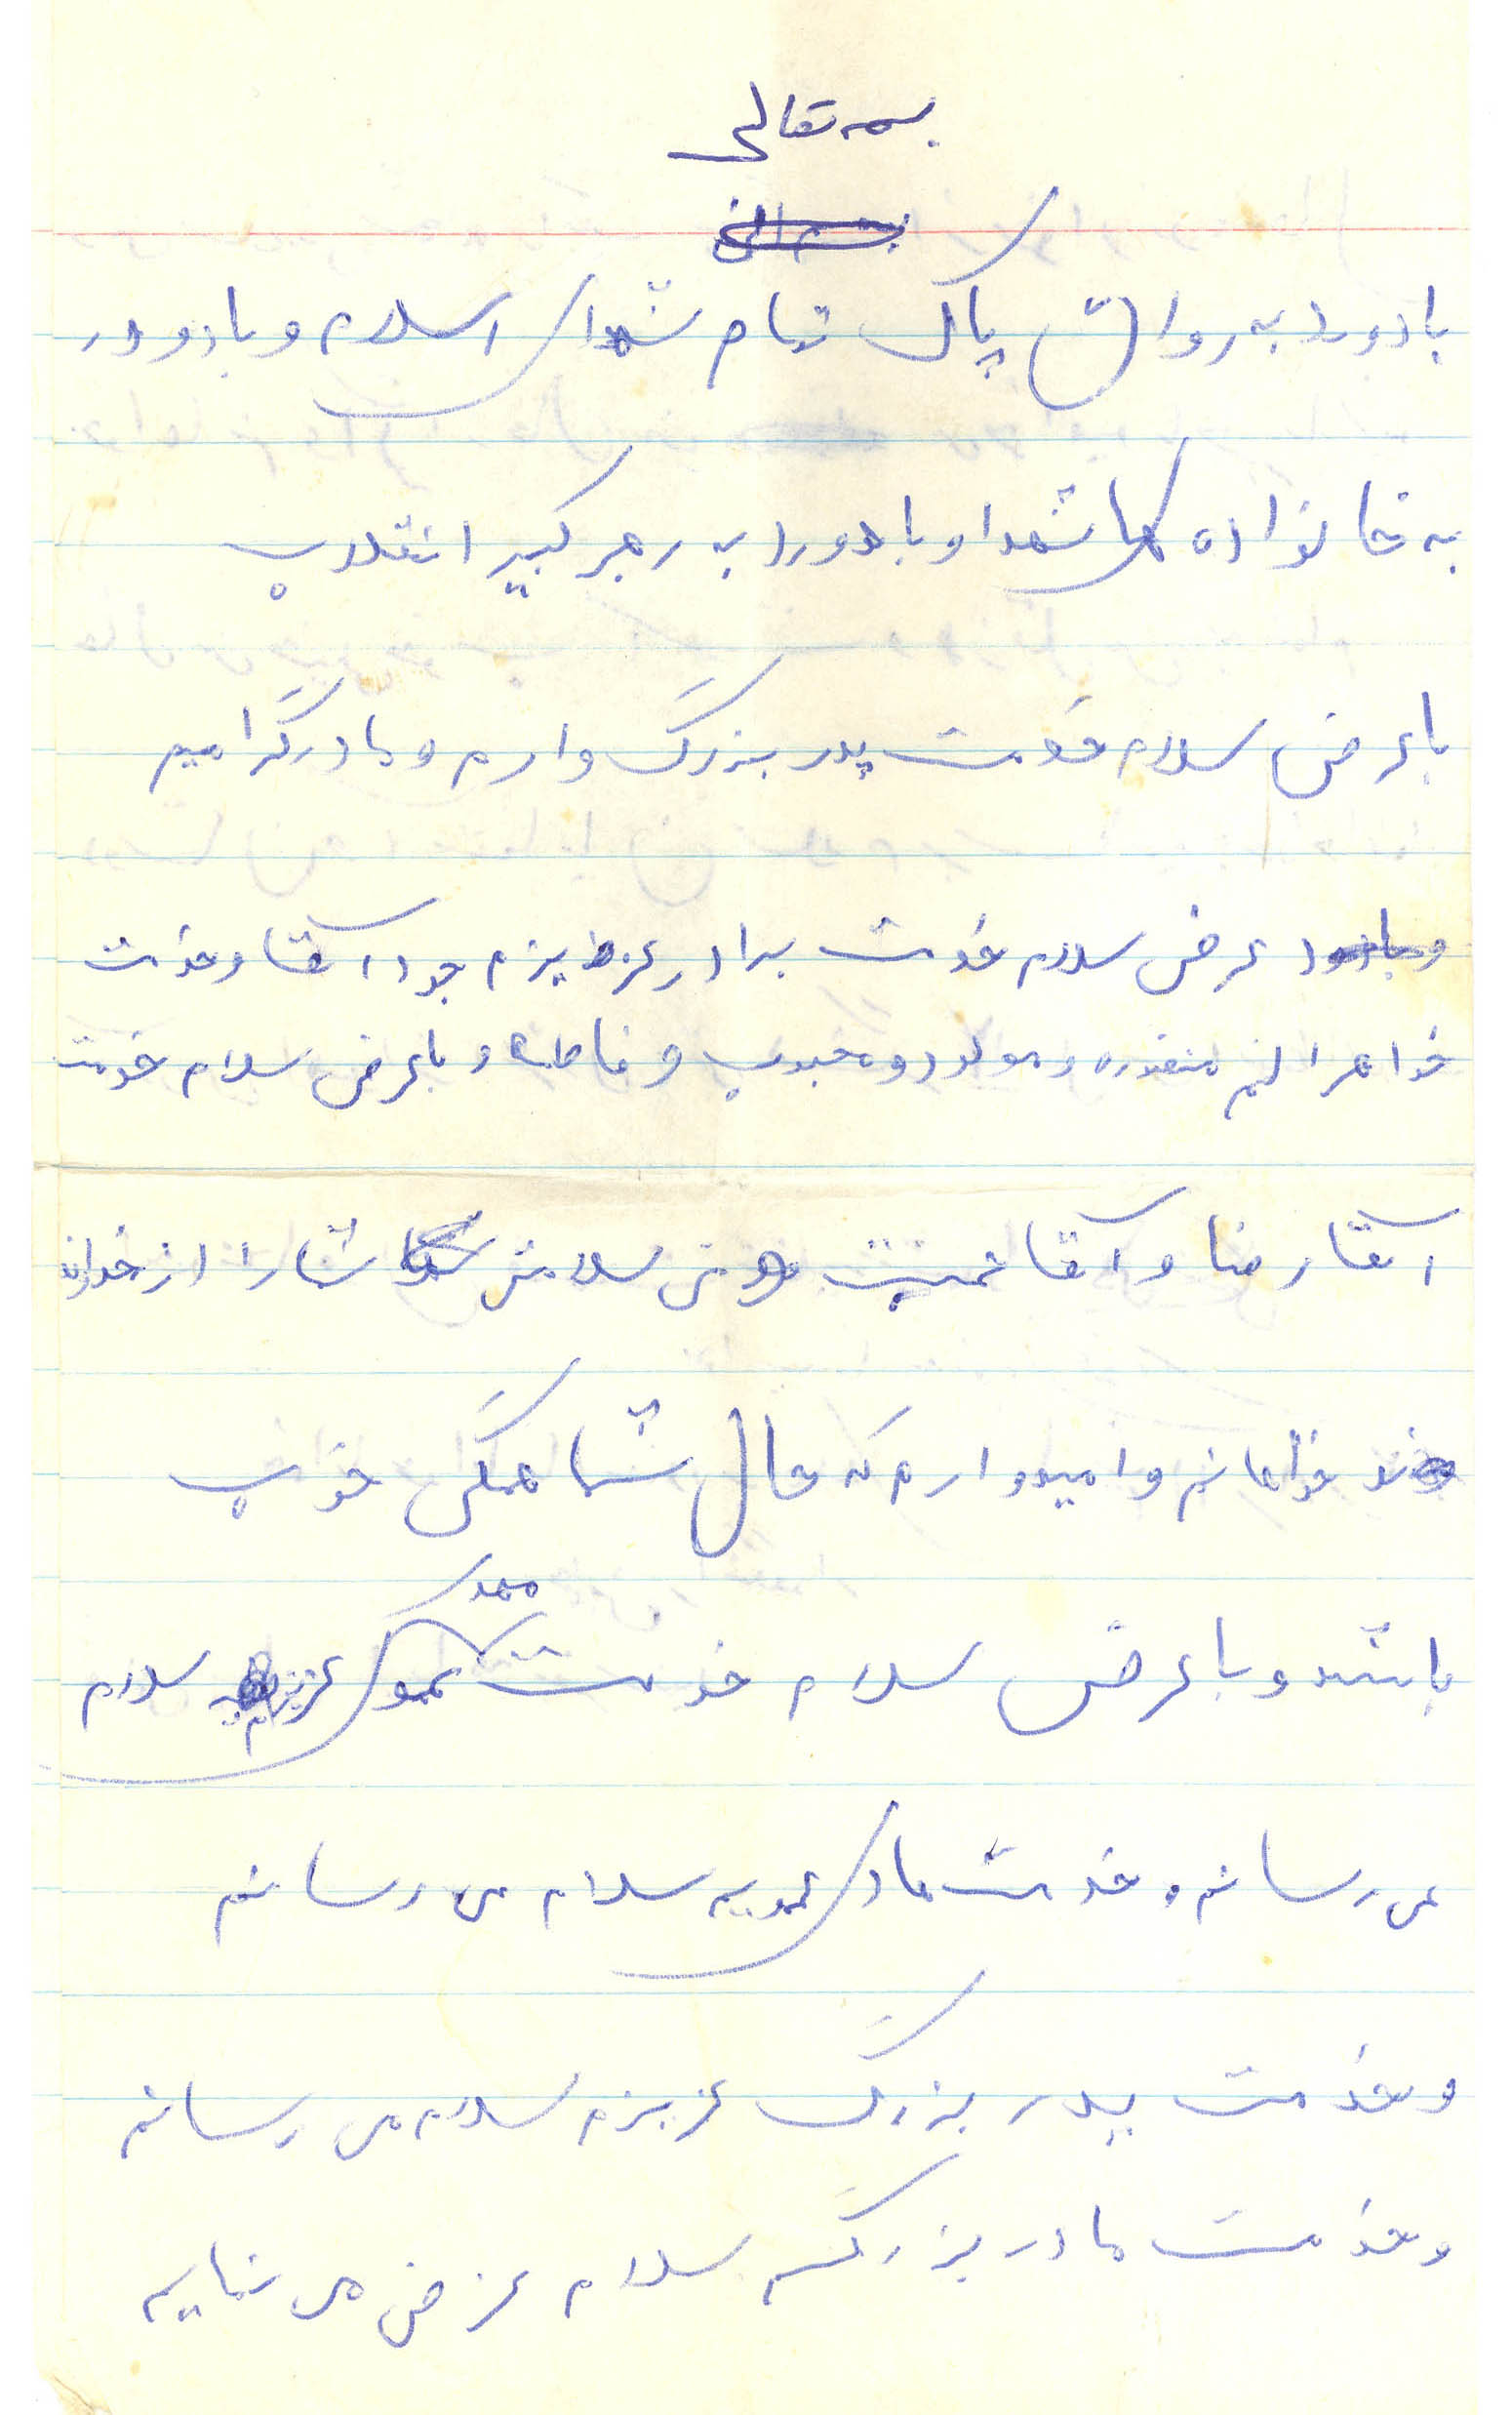 بسمه تعالی
با درود به روان پاک تمام شهدای اسلام و با درود
به خانواده های شهدا و با درود به رهبر کبیر انقلاب
با عرض سلام خدمت پدر بزرگ وارم و مادر گرامیم
عرض سلام خدمت برادر عزیزم جواد آقا و خدمت
خواهرانم منصوره و مولود و محبوب و فاطمه و با عرض سلام خدمت
آقا رضا و آقا سلامتی شما را از خداوند
خواهانم و امیدوارم که حال شما همگی خوب
باشد و با عرض سلام خدمت عموی محمد عزیزم سلام
می رسانم و خدمت مادر سلام می رسانم
و خدمت پدر بزرگ عزیزم سلام می رسانم
و خدمت مادر بزرگم سلام عرض می نمایم